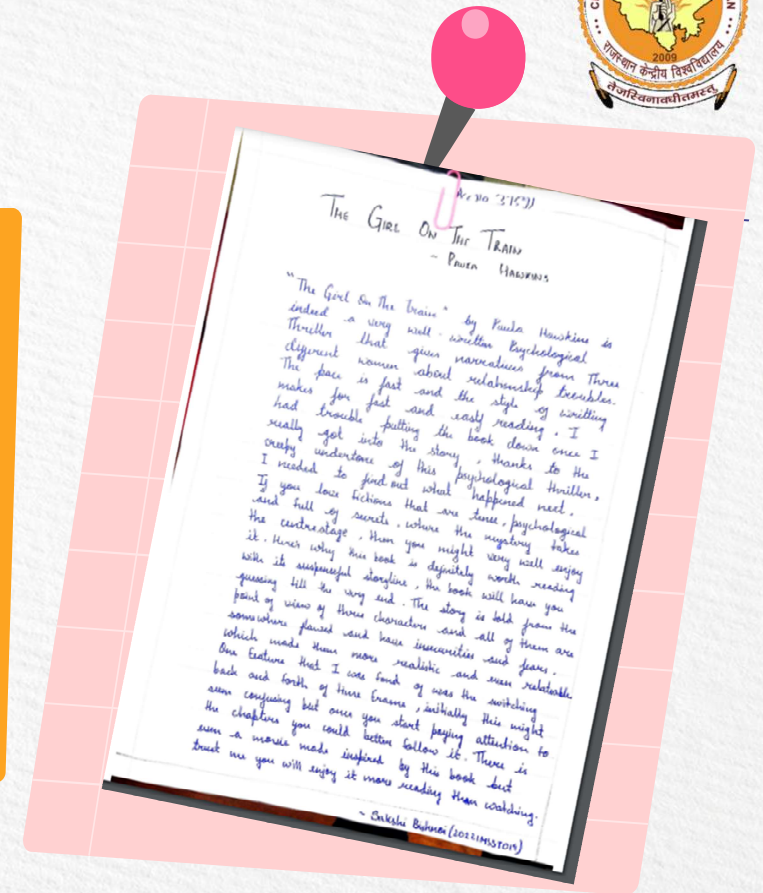 2009
राजस्थान केन्द्रीय विश्वविद्यालय
तेजस्विनावधीतमस्तु
Acc No
THE GIRL ON THE TRAIN
- PAULA HAWKINS
"The Girl On The Train" by Paula Hawkins is
indeed a very well-written Psychological
Thriller that gives narratives from Three
different women about relationship troubles.
The pace is fast and the style of writting
makes for fast and easy reading. I
had trouble putting the book down once I
really got into the story, thanks to the
creepy undertone of this psychological thriller,
I needed to find out what happened next.
If you love fictions that are tense, psychological
and full of secrets, where the mystery takes
the centrestage, then you might very well enjoy
it. Here's why this book is definitely worth reading
with its suspenseful storyline, the book will have you
guessing till the very end. The story is told from the
point of view of three characters and all of them are
somewhere flawed and have insecurities and fears.
which made them more realistic and even relateable
One feature that I was fond of was the switching
back and forth of time frame, initially this might
seem confusing but once you start paying attention to
the chapters you could better follow it. There is
even a movie made inspired by this book but
trust me you will enjoy it more reading than watching.
~ Sakshi Bishnoi